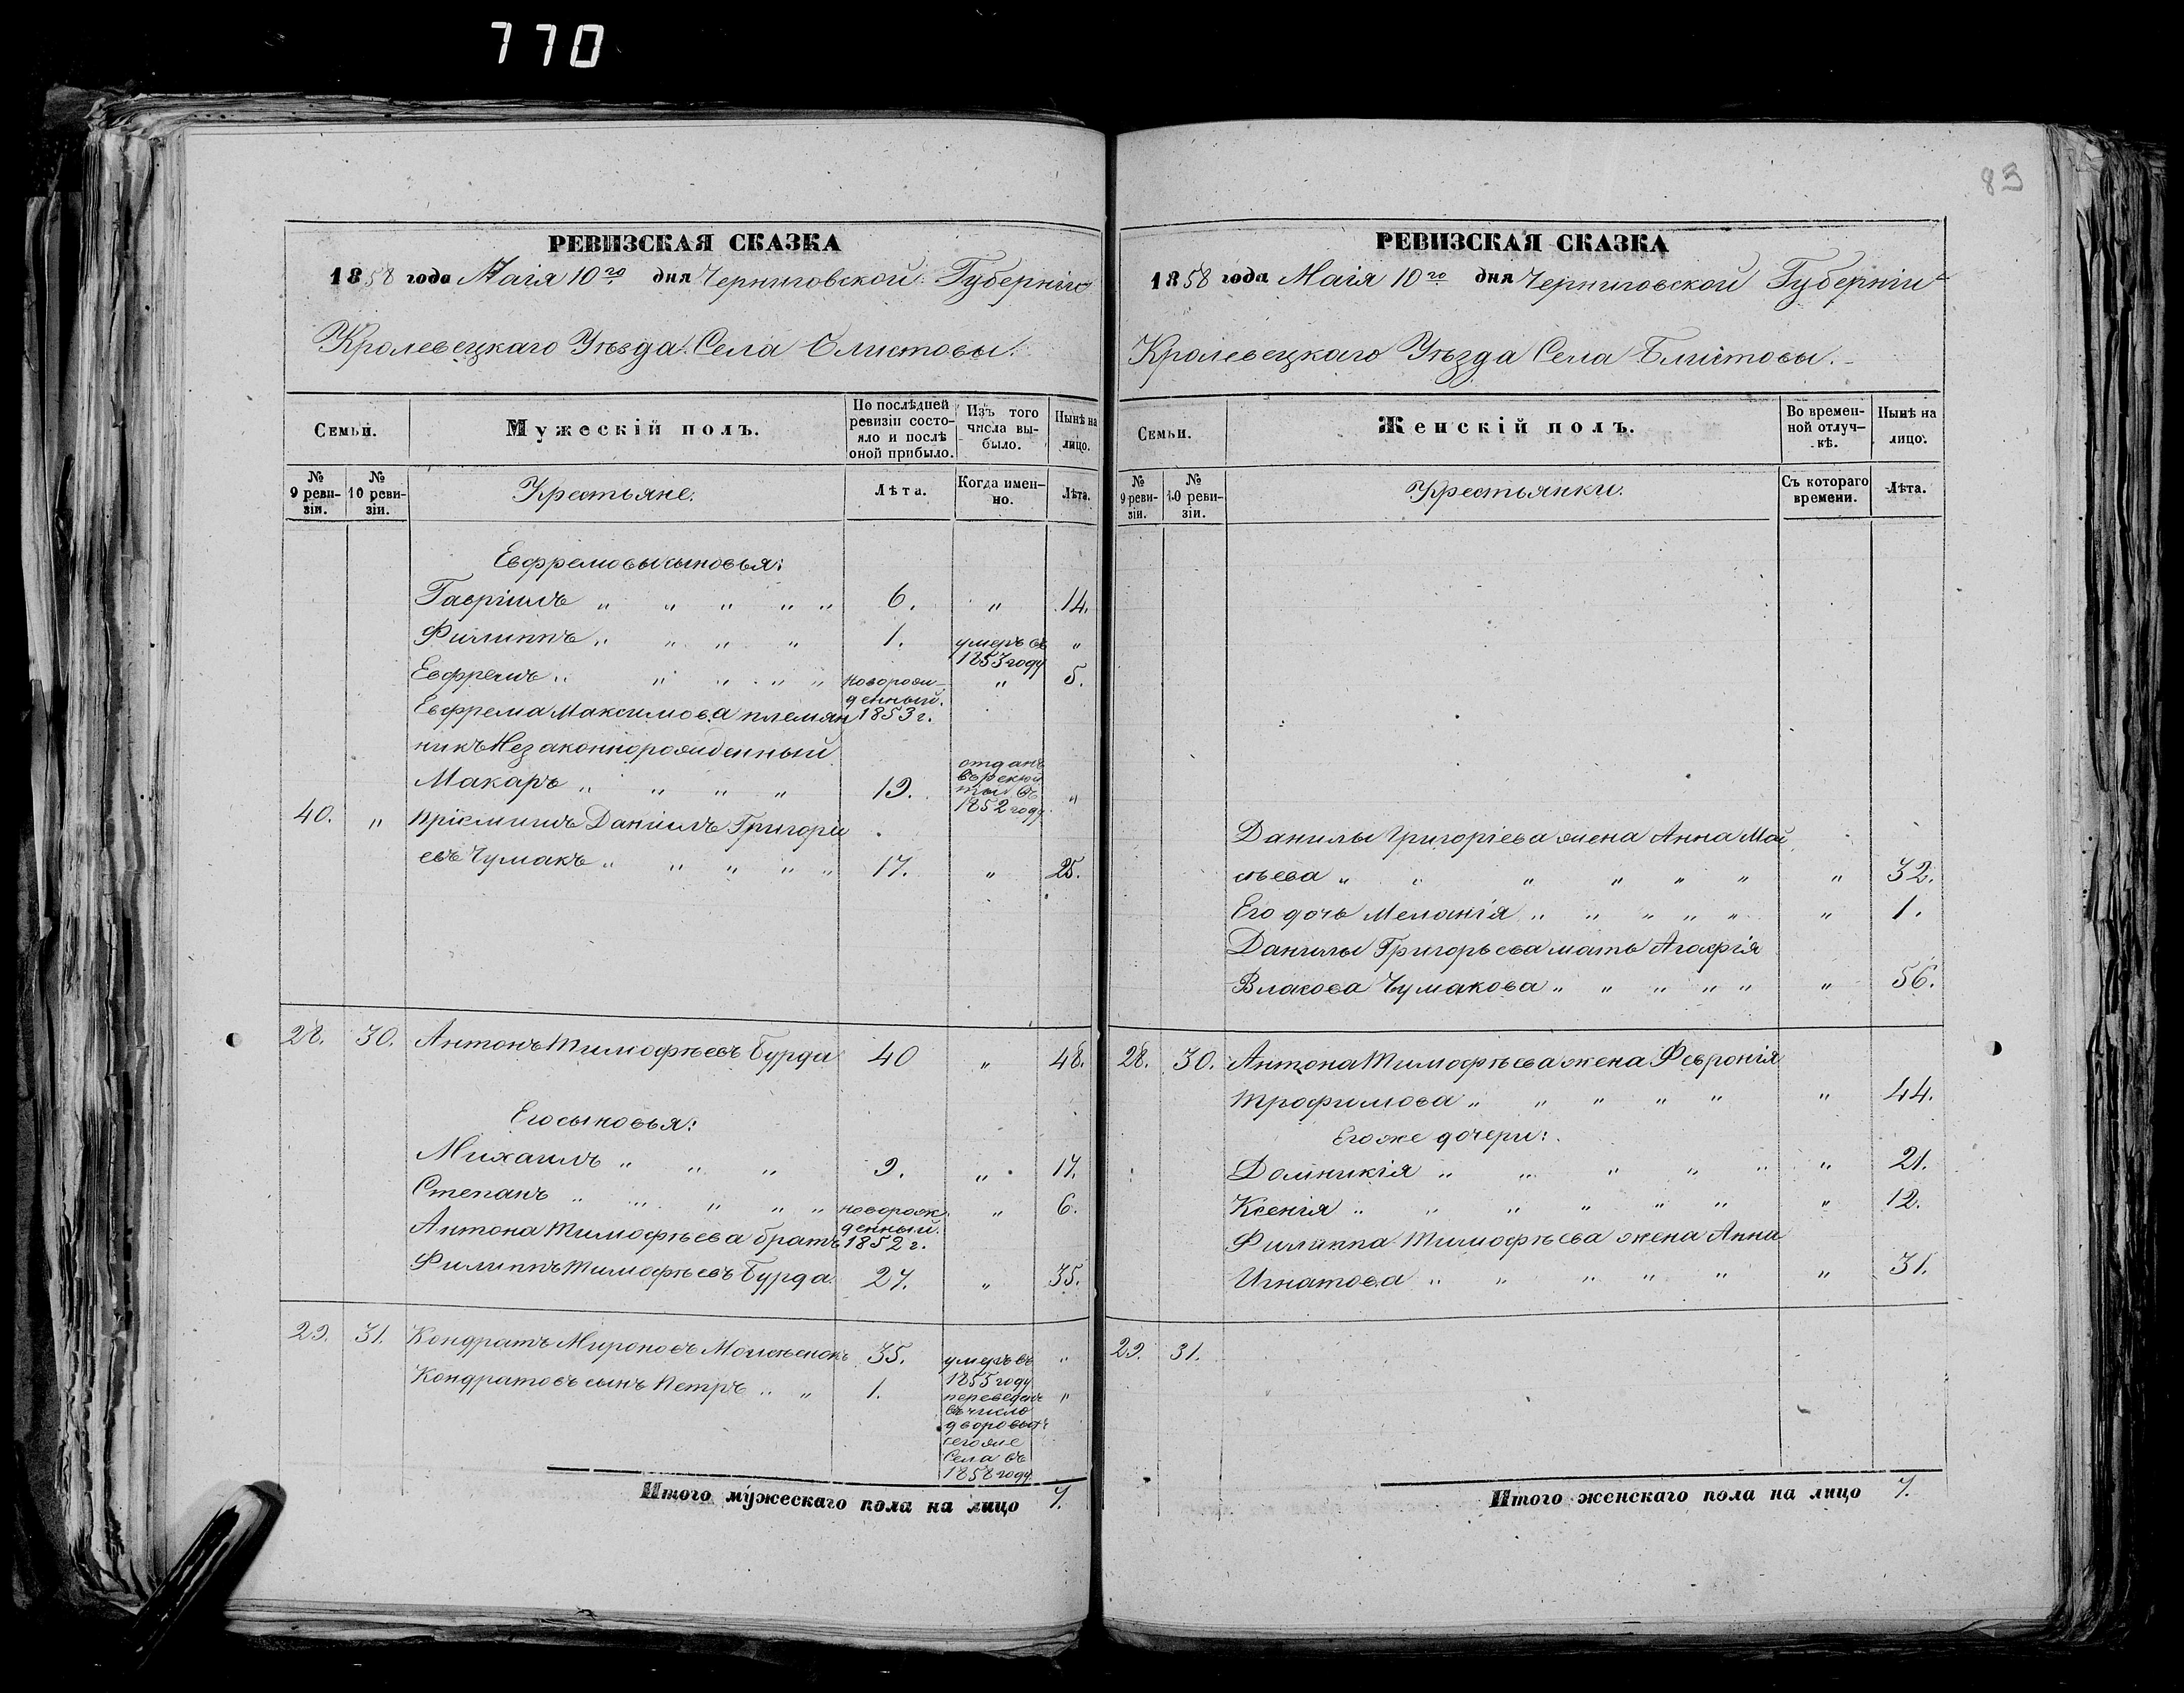 770
83
РЕВИЗСКАЯ СКАЗКА
1858 года Маія 10го дня Черниговской Губерніи
Кролевецкаго Уѣзда Села Блистовы.
Семьи.
Мужескій полъ.
По послѣдней ревизіи состояло и послѣ оной прибыло.
Изъ того числа выбыло.
Нынѣ на лицо.
№ 9 ревизіи.
№ 10 ревизіи.
Крестьяне.
Лѣта.
Когда именно.
Лѣта.
Евфремовы сыновья:
Гавріилъ " " " " " 6. " 14.
Филиппъ " " " " 1. умеръ въ 1853 году "
Евфремъ " " " " " новорожденный. 1853 г. " 5.
Евфрема Максимова племян
никъ Незаконнорожденный
Макаръ " " " " 19. отданъ въ рекруты въ 1852 году "
40. " Пріемышъ Даніилъ Григорі
евъ Чумакъ " " " " " 17. " 25.
28. 30. Антонъ Тимофѣевъ Бурда 40 " 48.
Его сыновья:
Михаилъ " " " 9. " 17.
Степанъ " " " " " новорожденный. 1852 г. " 6.
Антона Тимофѣева братъ
Филиппъ Тимофѣевъ Бурда. 27. " 35.
29. 31. Кондратъ Мироновъ 35. умеръ въ 1855 году "
Кондратовъ сынъ Петръ " " 1. переведенъ въ число дворовыхъ сегоже Села въ 1858 году. "
Итого мужескаго пола на лицо 7.
РЕВИЗСКАЯ СКАЗКА
1858 года Маія 10го дня Черниговской Губерніи
Кролевецкаго Уѣзда Села Блистовы.
Семьи.
Женскій полъ.
Во временной отлучкѣ.
Нынѣ на лицо.
№ 9 ревизіи.
№ 10 ревизіи.
Крестьянки.
Съ котораго времени.
Лѣта.
Данилы Григоріева жена Анна Мои
сѣева " " " " " " " 32.
Его дочь Меланія " " " " " " 1.
Данилы Григорьева мать Агафія
Власова Чумакова " " " " " " 56.
28. 30. Антона Тимофѣева жена Февронія
Трофимова " " " " " " 44.
Его же дочери:
Домникія " " " " " " 21.
Ксенія " " " " " " " 12.
Филиппа Тимофѣева жена Анна
Игнатова " " " " " " 31.
29. 31.
Итого женскаго пола на лицо 7.